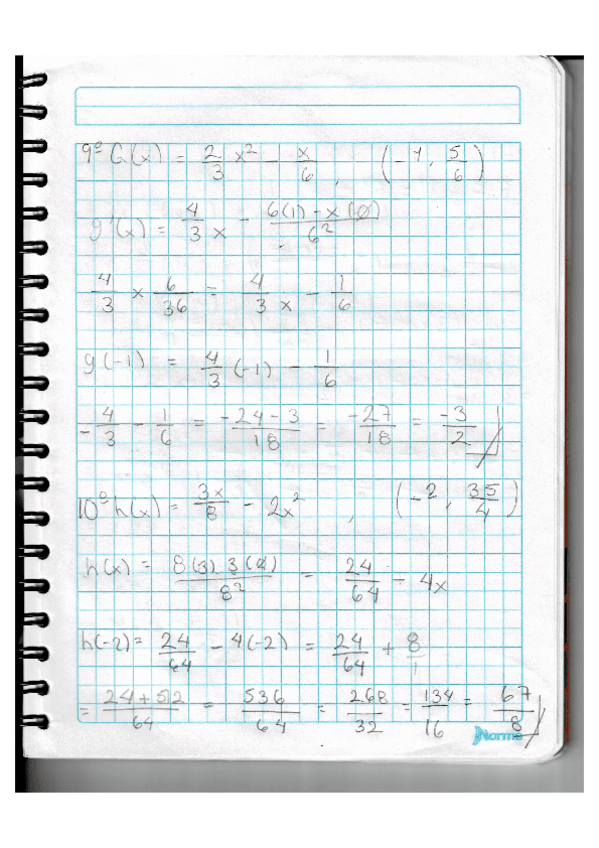 9° G(x) = 2/3 x² - x/6 , (-1, 5/6)
g'(x) = 4/3 x - 6(1) - x(0)/6²
4/3 x 6/36 = 4/3 x - 1/6
g(-1) = 4/3 (-1) - 1/6
-4/3 - 1/6 = -24-3/18 = -27/18 = -3/2
10° h(x) = 3x/8 - 2x² , (-2, 35/4)
h(x) = 8(3) 3(0)/8² = 24/64 - 4x
h(-2) = 24/64 - 4(-2) = 24/64 + 8/1
= 24+512/64 = 536/64 = 268/32 = 134/16 = 67/8
Norma